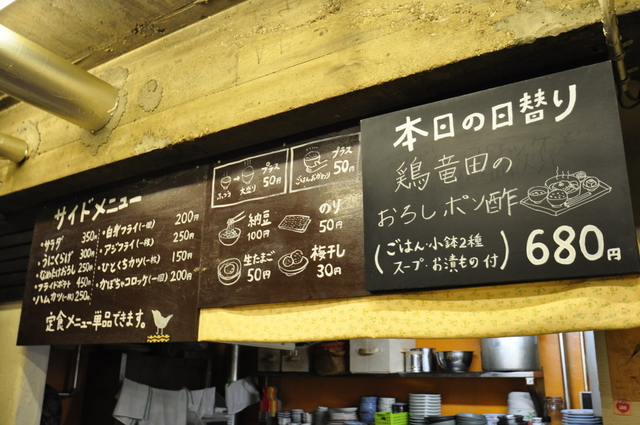 サイドメニュー
・サラダ 350円
・うにくらげ 300円
・なめたけおろし 250円
・フライドポテト 450円
・ハムカツ(一枚) 250円
・白身フライ(一個) 200円
・アジフライ(一枚) 250円
・ひとくちカツ(一枚) 150円
・かぼちゃコロッケ(一個) 200円
定食メニュー単品できます。
ふつう→大盛り プラス50円
ごはんおかわり プラス50円
納豆 100円
のり 50円
生たまご 50円
梅干し 30円
本日の日替り
鶏竜田の
おろしポン酢
(ごはん・小鉢2種
スープ・お漬もの付)
680円